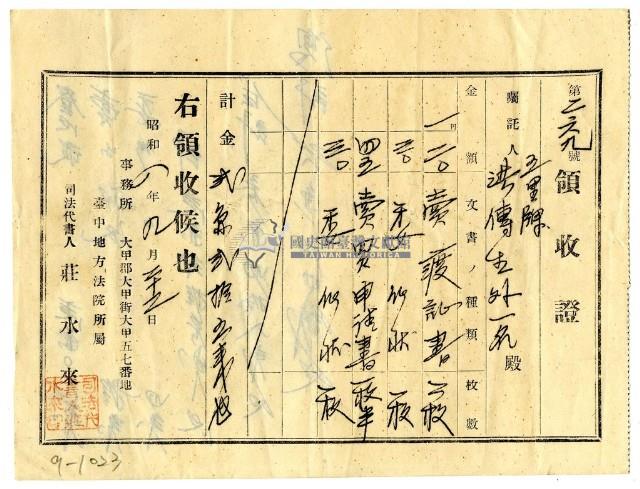 第二六九號
領收證
五里牌
囑託人 洪傳生外一名 殿
金額 文書ノ種類 枚數
一二〇 賣渡証書 二枚
三〇 委任狀 一枚
四五 賣買申請書 一枚半
三〇 委任狀 一枚
計金 弍圓弍拾五錢也
右領收候也
昭和八年九月廿五日
事務所 大甲郡大甲街大甲五七番地
臺中地方法院所屬
司法代書人 莊水來
國史館臺灣文獻館
TAIWAN HISTORICA
9-1023